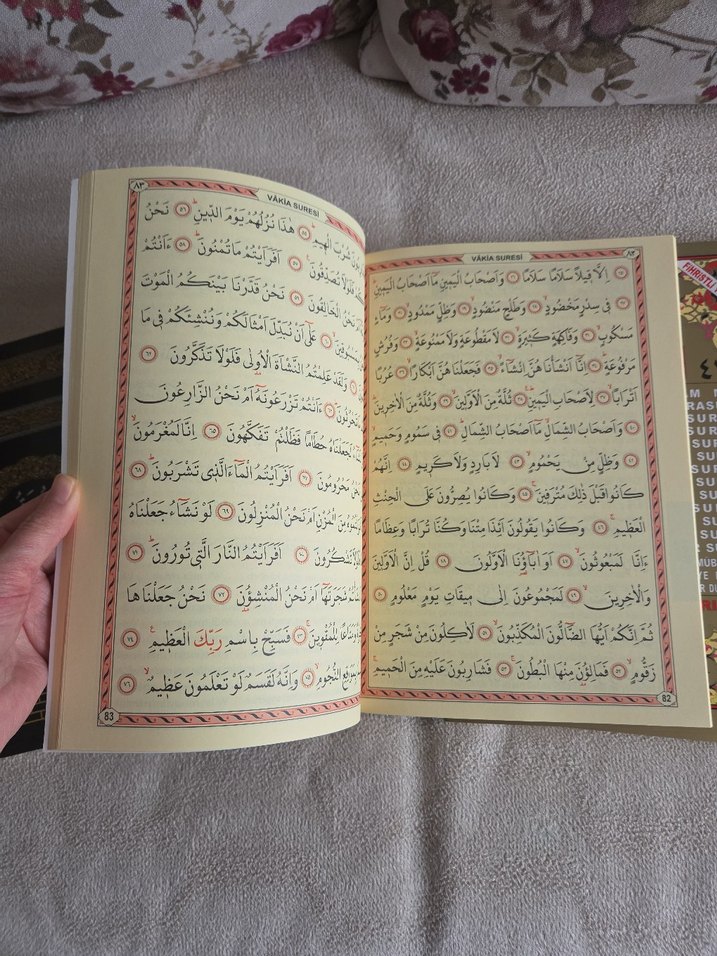 VÂKİA SURESİ
٨٢
اِلَّا قِيلًا سَلَامًا سَلَامًا ﴿٢٦﴾ وَاَصْحَابُ الْيَمِينِ مَا اَصْحَابُ الْيَمِينِ ﴿٢٧﴾
فِى سِدْرٍ مَخْضُودٍ ﴿٢٨﴾ وَطَلْحٍ مَنْضُودٍ ﴿٢٩﴾ وَظِلٍّ مَمْدُودٍ ﴿٣٠﴾ وَمَاءٍ
مَسْكُوبٍ ﴿٣١﴾ وَفَاكِهَةٍ كَثِيرَةٍ ﴿٣٢﴾ لَا مَقْطُوعَةٍ وَلَا مَمْنُوعَةٍ ﴿٣٣﴾ وَفُرُشٍ
مَرْفُوعَةٍ ﴿٣٤﴾ اِنَّا اَنْشَأْنَاهُنَّ اِنْشَاءً ﴿٣٥﴾ فَجَعَلْنَاهُنَّ اَبْكَارًا ﴿٣٦﴾ عُرُبًا
اَتْرَابًا ﴿٣٧﴾ لِاَصْحَابِ الْيَمِينِ ﴿٣٨﴾ ثُلَّةٌ مِنَ الْاَوَّلِينَ ﴿٣٩﴾ وَثُلَّةٌ مِنَ الْاٰخِرِينَ
﴿٤٠﴾ وَاَصْحَابُ الشِّمَالِ مَا اَصْحَابُ الشِّمَالِ ﴿٤١﴾ فِى سَمُومٍ وَحَمِيمٍ
﴿٤٢﴾ وَظِلٍّ مِنْ يَحْمُومٍ ﴿٤٣﴾ لَا بَارِدٍ وَلَا كَرِيمٍ ﴿٤٤﴾ اِنَّهُمْ
كَانُوا قَبْلَ ذٰلِكَ مُتْرَفِينَ ﴿٤٥﴾ وَكَانُوا يُصِرُّونَ عَلَى الْحِنْثِ
الْعَظِيمِ ﴿٤٦﴾ وَكَانُوا يَقُولُونَ اَئِذَا مِتْنَا وَكُنَّا تُرَابًا وَعِظَامًا
ءَاِنَّا لَمَبْعُوثُونَ ﴿٤٧﴾ اَوَ اٰبَاؤُنَا الْاَوَّلُونَ ﴿٤٨﴾ قُلْ اِنَّ الْاَوَّلِينَ
وَالْاٰخِرِينَ ﴿٤٩﴾ لَمَجْمُوعُونَ اِلٰى مِيقَاتِ يَوْمٍ مَعْلُومٍ ﴿٥٠﴾
ثُمَّ اِنَّكُمْ اَيُّهَا الضَّالُّونَ الْمُكَذِّبُونَ ﴿٥١﴾ لَاٰكِلُونَ مِنْ شَجَرٍ مِنْ
زَقُّومٍ ﴿٥٢﴾ فَمَالِؤُنَ مِنْهَا الْبُطُونَ ﴿٥٣﴾ فَشَارِبُونَ عَلَيْهِ مِنَ الْحَمِيمِ
82
٨٣
VÂKİA SURESİ
شُرْبَ الْهِيمِ ﴿٥٥﴾ هٰذَا نُزُلُهُمْ يَوْمَ الدِّينِ ﴿٥٦﴾ نَحْنُ
فَلَوْلَا تُصَدِّقُونَ ﴿٥٧﴾ اَفَرَاَيْتُمْ مَا تُمْنُونَ ﴿٥٨﴾ ءَاَنْتُمْ
نَحْنُ الْخَالِقُونَ ﴿٥٩﴾ نَحْنُ قَدَّرْنَا بَيْنَكُمُ الْمَوْتَ
﴿٦٠﴾ عَلٰى اَنْ نُبَدِّلَ اَمْثَالَكُمْ وَنُنْشِئَكُمْ فِى مَا
﴿٦١﴾ وَلَقَدْ عَلِمْتُمُ النَّشْاَةَ الْاُولٰى فَلَوْلَا تَذَكَّرُونَ ﴿٦٢﴾
﴿٦٣﴾ ءَاَنْتُمْ تَزْرَعُونَهُ اَمْ نَحْنُ الزَّارِعُونَ
لَجَعَلْنَاهُ حُطَامًا فَظَلْتُمْ تَفَكَّهُونَ ﴿٦٥﴾ اِنَّا لَمُغْرَمُونَ
نَحْنُ مَحْرُومُونَ ﴿٦٧﴾ اَفَرَاَيْتُمُ الْمَاءَ الَّذِى تَشْرَبُونَ ﴿٦٨﴾
مِنَ الْمُزْنِ اَمْ نَحْنُ الْمُنْزِلُونَ ﴿٦٩﴾ لَوْ نَشَاءُ جَعَلْنَاهُ
تَشْكُرُونَ ﴿٧٠﴾ اَفَرَاَيْتُمُ النَّارَ الَّتِى تُورُونَ ﴿٧١﴾
شَجَرَتَهَا اَمْ نَحْنُ الْمُنْشِؤُنَ ﴿٧٢﴾ نَحْنُ جَعَلْنَاهَا
لِلْمُقْوِينَ ﴿٧٣﴾ فَسَبِّحْ بِاسْمِ رَبِّكَ الْعَظِيمِ ﴿٧٤﴾
بِمَوَاقِعِ النُّجُومِ ﴿٧٥﴾ وَاِنَّهُ لَقَسَمٌ لَوْ تَعْلَمُونَ عَظِيمٌ ﴿٧٦﴾
83
FİHRİSTLİ